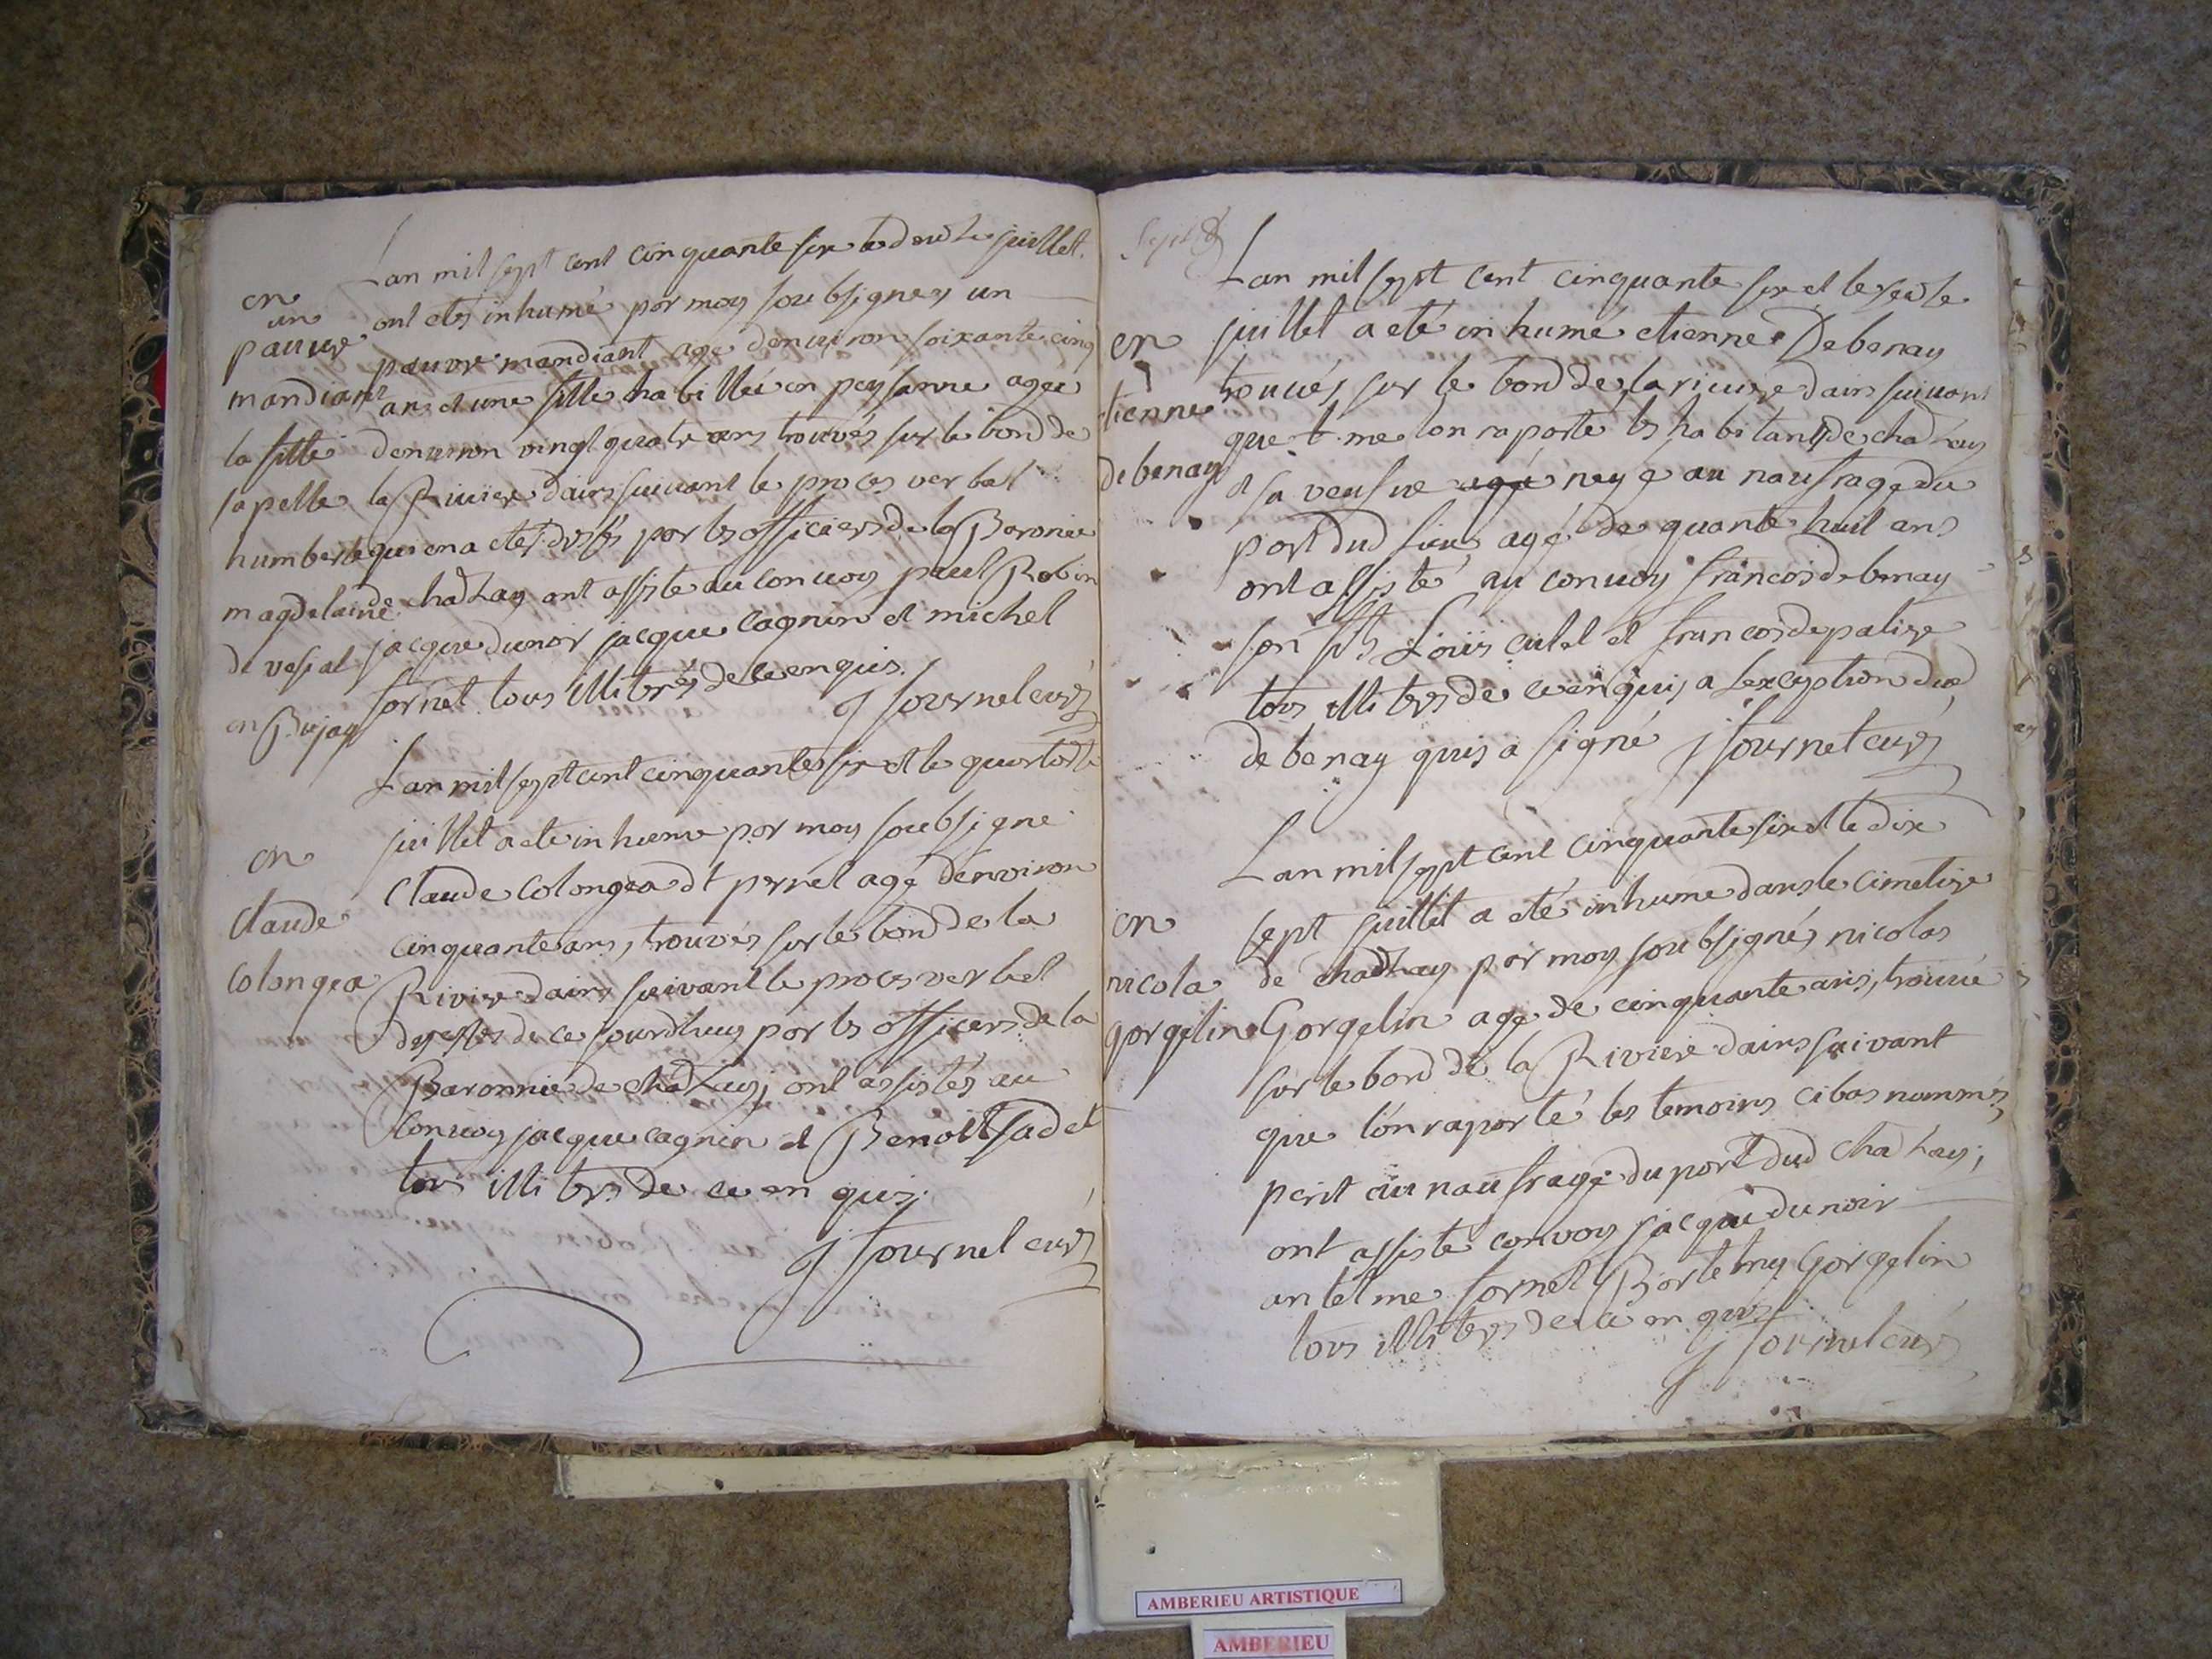 Lan mil sept cent cinquante six le douze juillet
ont etes inhumé par moy soubsignez un
pauvre mandiant agé denviron soixante cinq
ans et une fille habillée en paysanne agée
denviron vingt quatre ans trouvés sur le bord de
la Riviere dains suivant le proces verbal
qui en a eté par les officiers de la Baronie
de chazay ont assisté au convoy paul Robin
jacque dunoir jacque cagnin et michel
fornet tous illitrés de ce enquis.
j fournet curé
en
un
pauvre
mandiant
la fille
sapelle
humberte
magdelaine
de
en Bujay
Lan mil sept cent cinquante six et le quatorze
juillet a eté inhumé par moy soubsigné
Claude Colongea dt perret agé denviron
cinquante ans, trouvés sur le bord de la
Riviere dains suivant le proces verbal
de ce jourdhuy par les officiers de la
Baronnie de chazay, ont assistés au
Convoy jacque cagnin et Benoit Sadet
tous illitres de ce en quis.
j fournet curé
en
Claude
Colongea
Lan mil sept cent cinquante six et le seize
juillet a eté inhumé etienne Debenay
trouvés sur le bord de la riviere dains suivant
que me lon raporté les habitants de chazay
et sa veufve agé neyé au naufrage du
port dud lieu agé de quante huit ans
ont assisté au convoy francois debenay
son fils Louis cutel et francois depalise
tous illitres de ce enquis a lexception dud
debenay quis a signé j fournet curé
en
etienne
debenay
Lan mil sept cent cinquante six et le dix
sept juillet a eté inhumé dans le cimetire
de chazay par moy soubsignés nicolas
Gorgelin agé de cinquante ans, trouvé
sur le bord de la Riviere dains suivant
que lon raporté les temoins cibas nommés,
perit au naufrage du port dud chazay,
ont assisté convoy jacque dunoir
antelme fornet Bartelmy Gorgelin
tous illitres de ce en quis
j fournet curé
en
nicola
gorgelin
AMBERIEU ARTISTIQUE
AMBERIEU